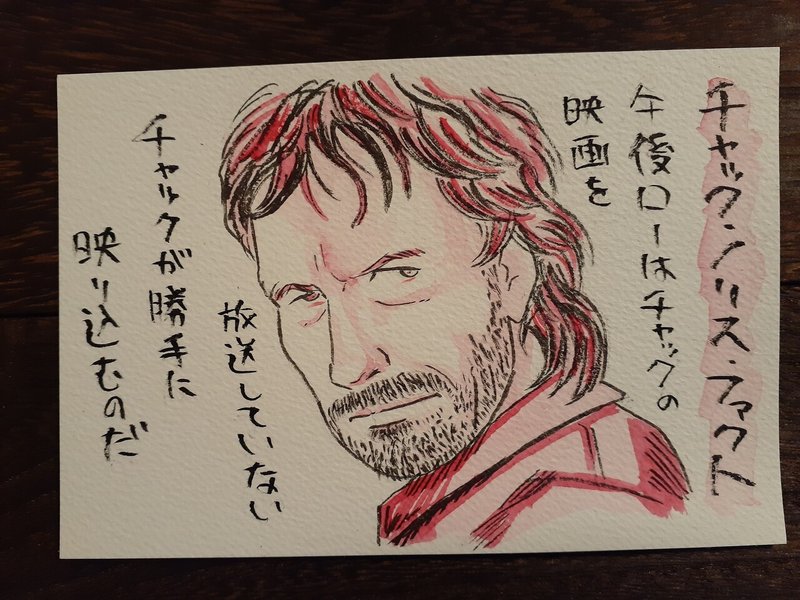 チャック・ノリス・ファクト
午後ローはチャックの
映画を
放送していない
チャックが勝手に
映り込むのだ